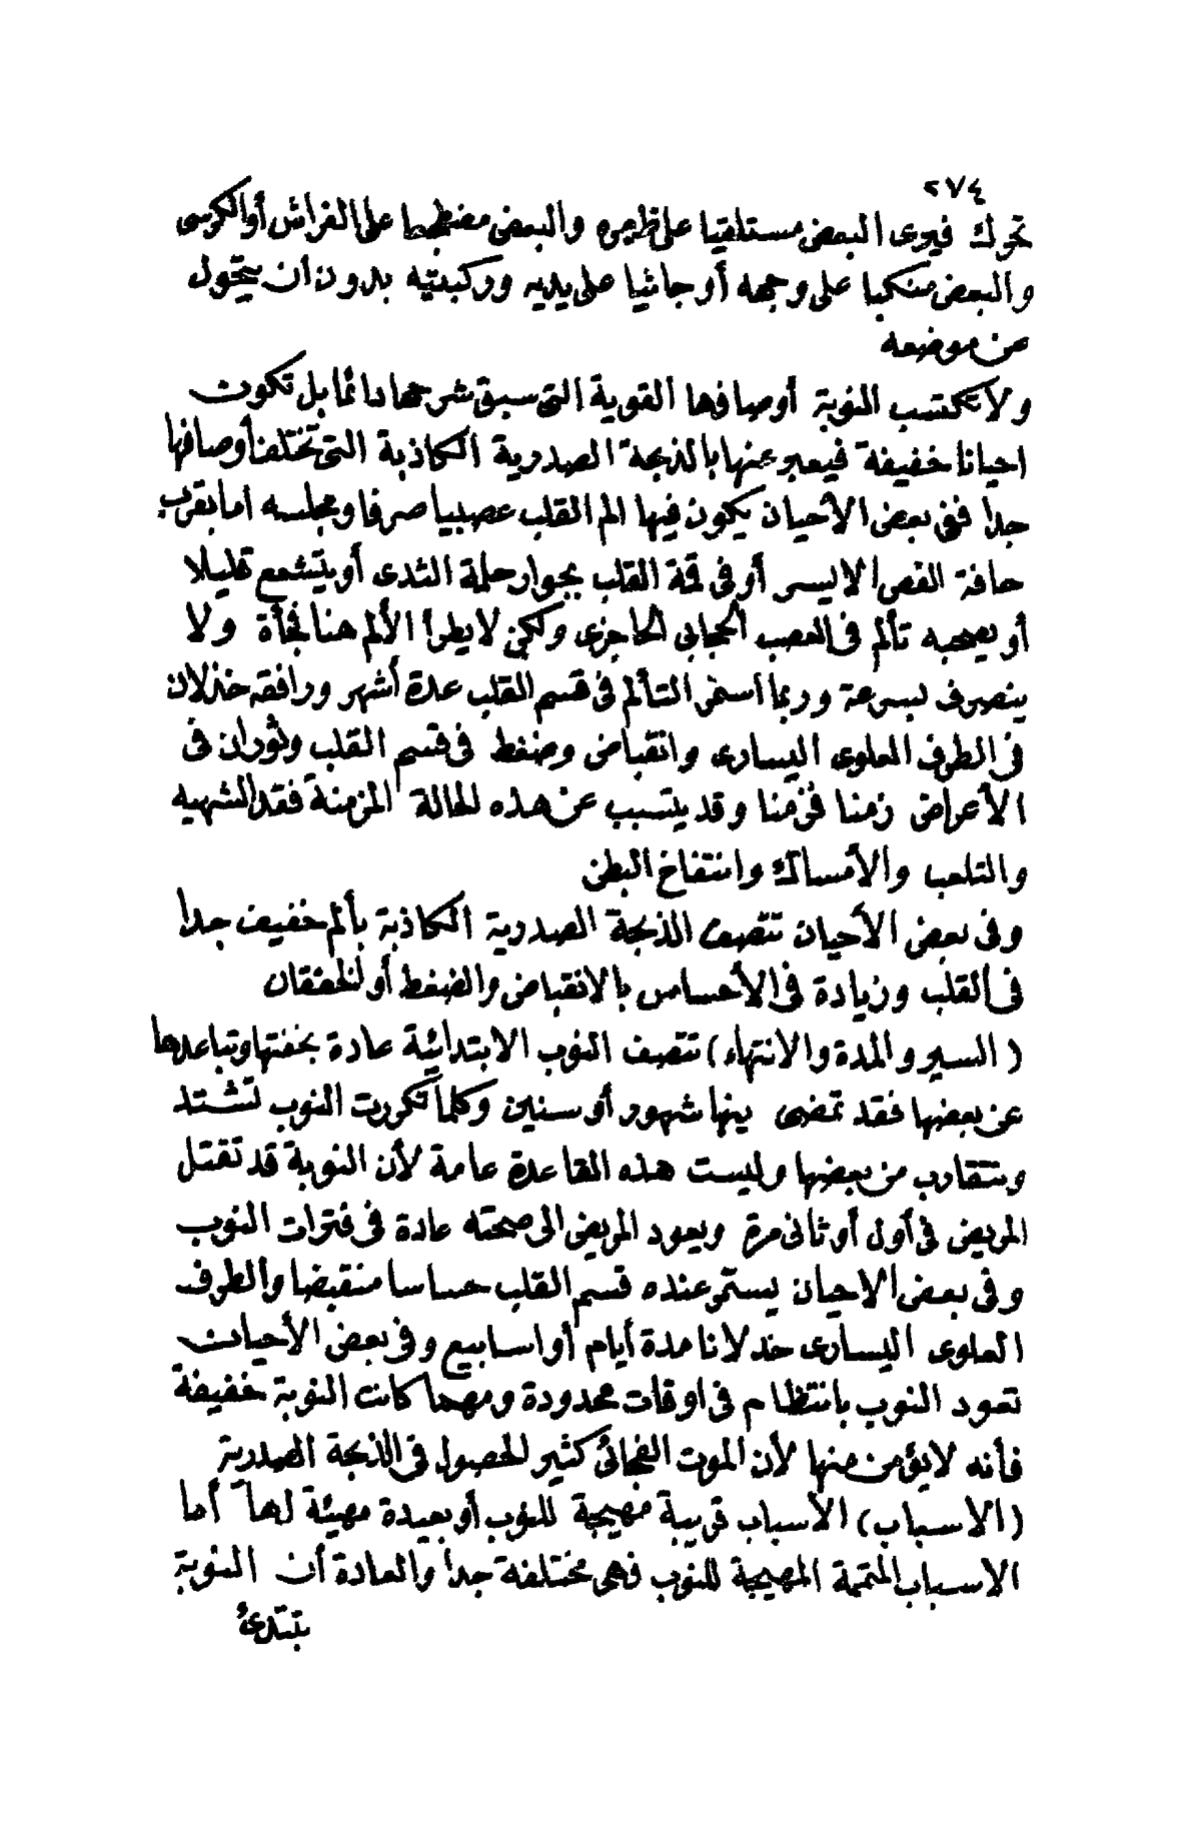 ٢٧٤
تحرك فيرى البعض مستلقيا على ظهره والبعض مضطجعا على الفراش أو الكرسى
والبعض منكبا على وجهه أو جاثيا على يديه وركبتيه بدون ان يتحول
عن موضعه
ولا تكتسب النوبة أوصافها القوية التى سبق شرحها دائما بل تكون
احيانا خفيفة فيعبر عنها بالذبحة الصدرية الكاذبة التى تختلف أوصافها
جدا ففى بعض الأحيان يكون فيها الم القلب عصبيا صرفا ومجلسه اما بقرب
حافة القص الايسر أو فى قمة القلب بجوار حلمة الثدى أو يتشعع قليلا
أو يصحبه تألم فى العصب الحجابى الحاجزى ولكن لا يطرأ الألم هنا فجأة ولا
ينصرف بسرعة وربما استمر التألم فى قسم القلب عدة أشهر ورافقه خذلان
فى الطرف العلوى اليسارى وانقباض وضغط فى قسم القلب وثوران فى
الأعراض زمنا فزمنا وقد يتسبب عن هذه الحالة المزمنة فقد الشهيه
والتلعب والأمساك وانتفاخ البطن
وفى بعض الأحيان تتصف الذبحة الصدرية الكاذبة بألم خفيف جدا
فى القلب وزيادة فى الأحساس بالانقباض والضغط أو الخفقان
( السير والمدة والانتهاء ) تتصف النوب الابتدائية عادة بخفتها وتباعدها
عن بعضها فقد تمضى بينها شهور أو سنين وكلما تكررت النوب تشتد
وتتقارب من بعضها وليست هذه القاعدة عامة لأن النوبة قد تقتل
المريض فى أول أو ثانى مرة ويعود المريض الى صحته عادة فى فترات النوب
وفى بعض الاحيان يستمر عنده قسم القلب حساسا منقبضا والطرف
العلوى اليسارى خدلانا مدة أيام أو اسابيع وفى بعض الأحيان
تعود النوب بانتظام فى اوقات محدودة ومهما كانت النوبة خفيفة
فأنه لا يؤمن منها لأن الموت الفجائى كثير الحصول فى الذبحة الصدرية
( الاسباب ) الأسباب قريبة مهيجة للنوب أو بعيدة مهيئة لها أما
الاسباب المتممة المهيجة للنوب فهى مختلفة جدا والعادة أن النوبة
تبتدئ